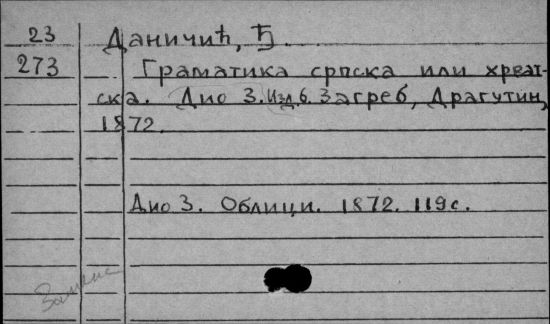 23 Даничић, Ђ.
273 Граматика српска или хрват-
ска. Дио 3. Изд. 6. Загреб, Драгутин,
1872.
Дио 3. Облици. 1872. 119 с.
Замена